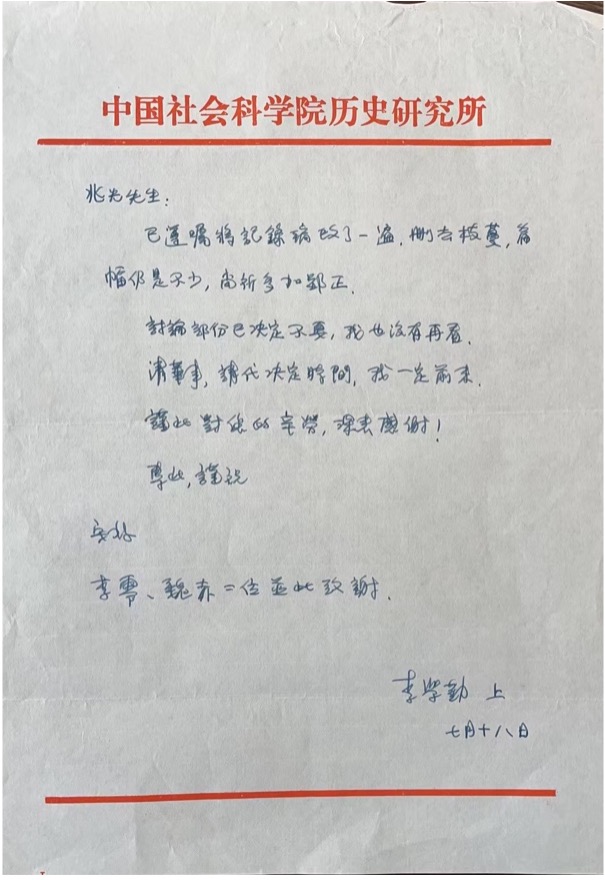 中国社会科学院历史研究所
兆光先生:
已遵嘱將記錄稿改了一遍,刪去枝蔓,篇
幅仍是不少,尚祈多加郢正.
討論部份已决定不要,我也沒有再看.
清華事,請代决定時間,我一定前来.
謹此對您的辛勞,深表感谢!
專此,謹祝
安好
李零、魏赤二位並此致謝.
李學勤 上
七月十八日